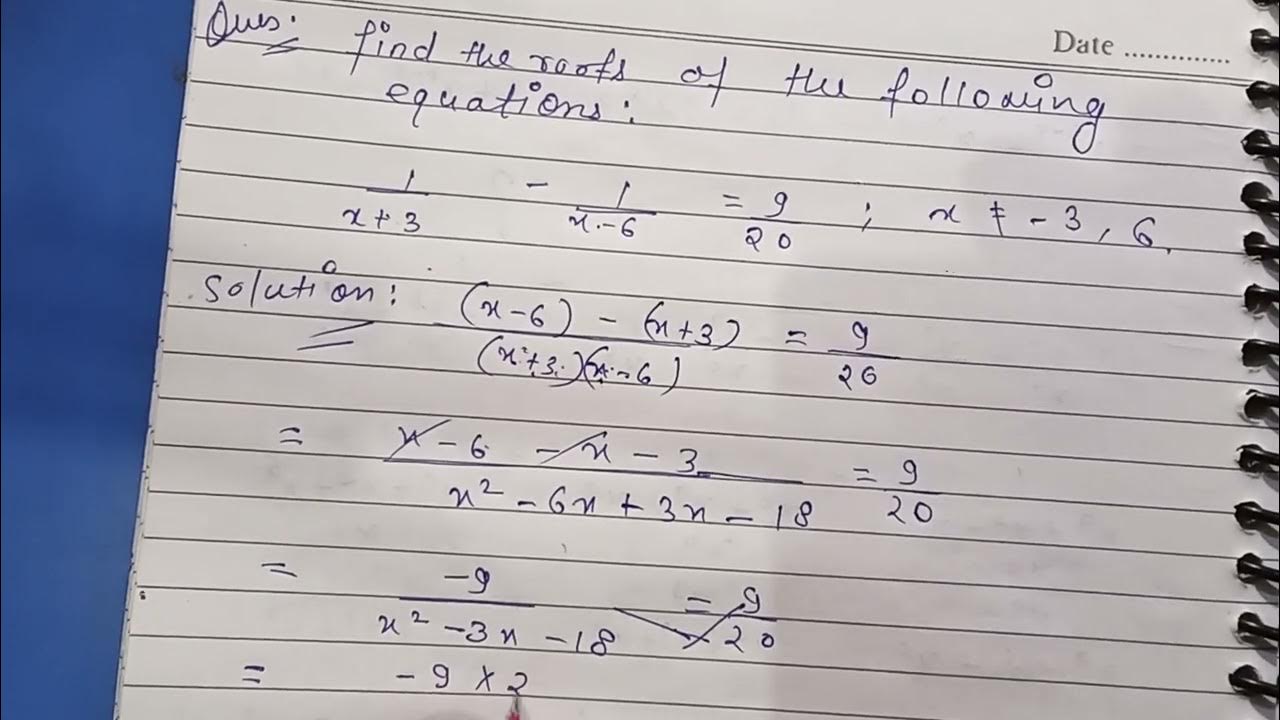 Date ..............
Ques: find the roots of the following
equations:
1/(x+3) - 1/(x-6) = 9/20 ; x ≠ -3, 6.
Solution: ((x-6) - (x+3))/((x+3)(x-6)) = 9/20
= (x - 6 - x - 3)/(x² - 6x + 3x - 18) = 9/20
= -9/(x² - 3x - 18) = 9/20
= -9 × 2